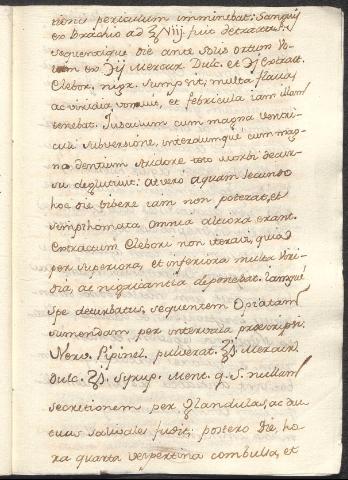 tionis periculum imminebat: Sanguis
ex brachio ad ℥ viij. fuit detractus.
sequentique die ante Solis ortum Bo-
lum ex ℈ij Mercur. Dulc. et ℈j Extract.
Elebor. nigr. sumpsit; multa flava,
ac viridia vomuit, et febricula iam illam
tenebat. Jusculum cum magna ventri-
culi subversione, interdumque cum mag-
na dentium stridore toto morbi decur-
su deglutiut: at verò aquam secundo
hoc die bibere iam non poterat, et
simphomata omnia altiora erant.
Extractum Elebori non iteravi, quia
per superiora, et inferiora multa viri-
dia, ac nigricantia deponebat. Iamque
spe deturbatus, sequentem Opiatam
sumendam per intervalla praescripsi.
Pipinel. pulverat. ℥s. Mercur.
Dulc. Syrup. Ment. q. s. nullam
secretionem per glandulas, ac duc-
tus salivales fudit; postero die, ho-
ra quarta vespertina combulsa, et